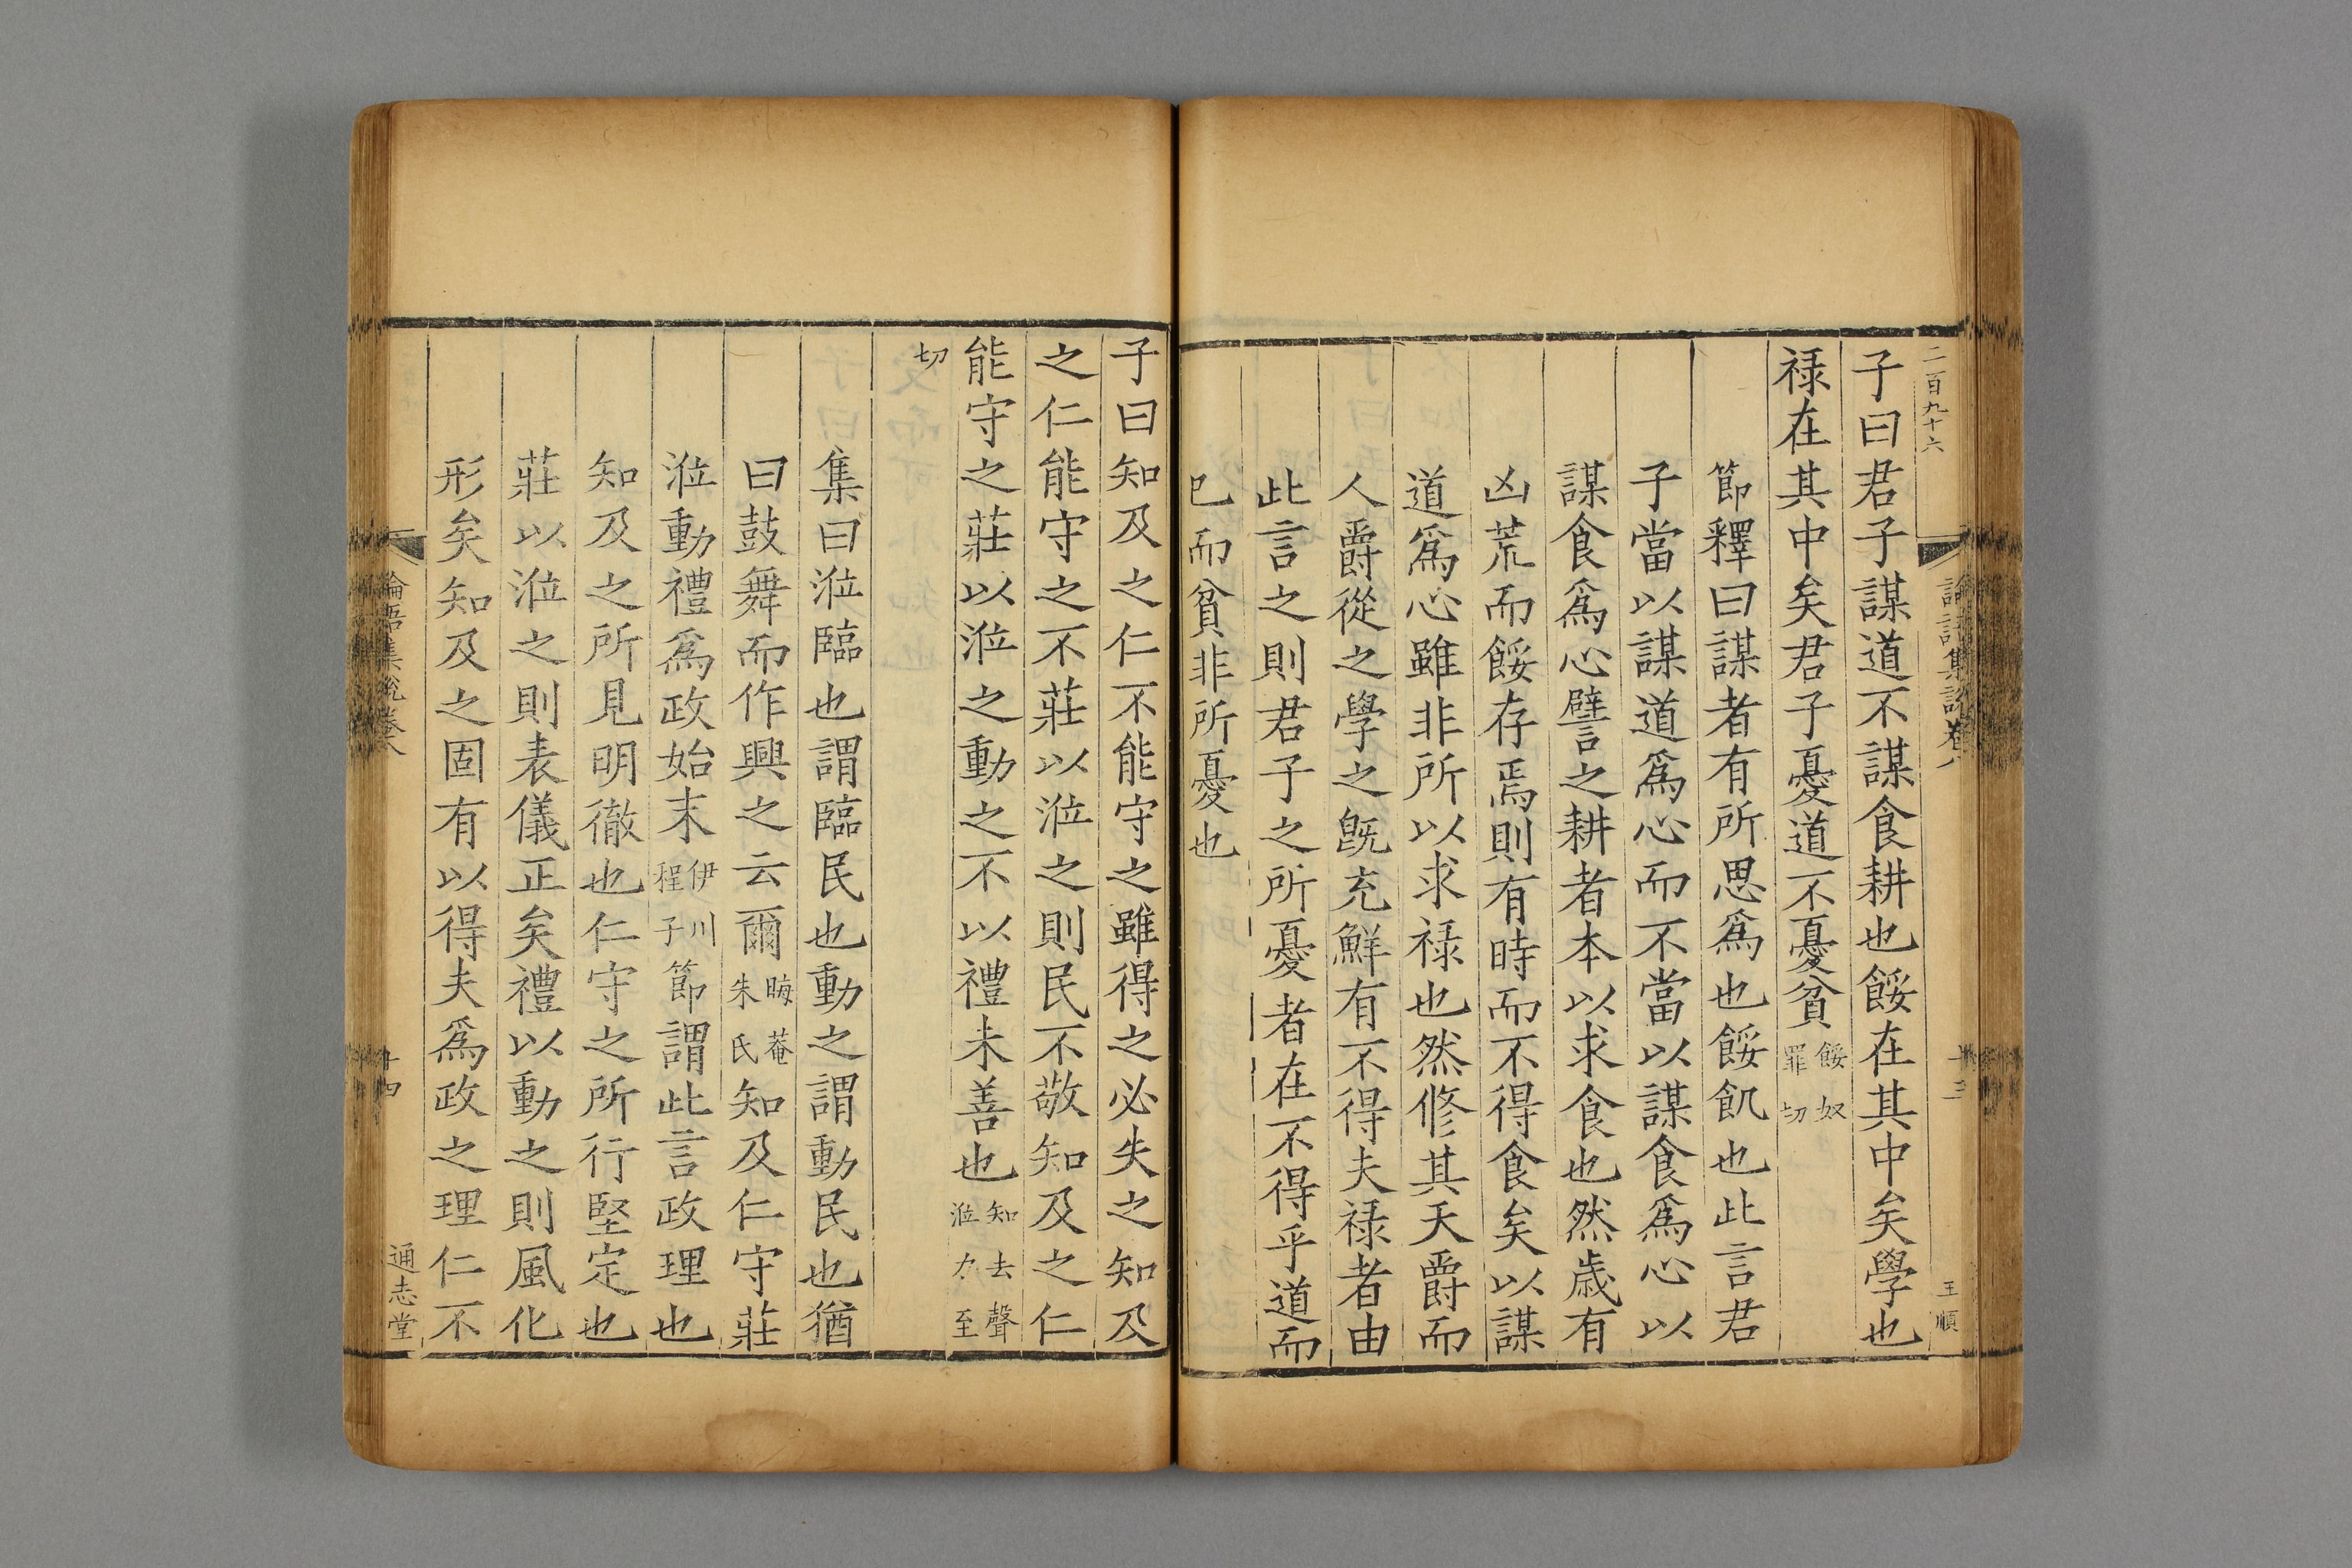 二百九十六
子曰君子謀道不謀食耕也餒在其中矣學也
祿在其中矣君子憂道不憂貧餒奴罪切
節釋曰謀者有所思爲也餒飢也此言君
子當以謀道爲心而不當以謀食爲心以
謀食爲心譬之耕者本以求食也然歲有
凶荒而餒存焉則有時而不得食矣以謀
道爲心雖非所以求祿也然脩其天爵而
人爵從之學之旣充鮮有不得夫祿者由
此言之則君子之所憂者在不得乎道而
已而貧非所憂也
王順
子曰知及之仁不能守之雖得之必失之知及
之仁能守之不莊以涖之則民不敬知及之仁
能守之莊以涖之動之不以禮未善也知去聲涖力至
切
集曰涖臨也謂臨民也動之謂動民也猶
曰鼓舞而作興之云爾晦菴朱氏知及仁守莊
涖動禮爲政始末伊川程子節謂此言政理也
知及之所見明徹也仁守之所行堅定也
莊以涖之則表儀正矣禮以動之則風化
形矣知及之固有以得夫爲政之理仁不
論語集說卷八
十四
通志堂